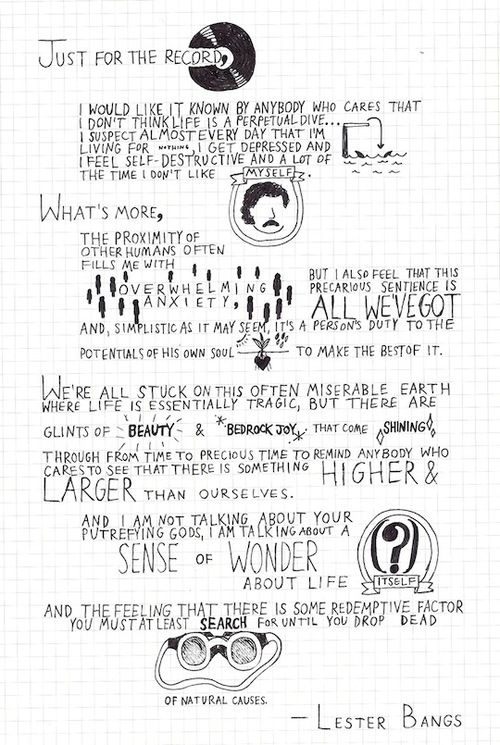 JUST FOR THE RECORD,
I WOULD LIKE IT KNOWN BY ANYBODY WHO CARES THAT
I DON'T THINK LIFE IS A PERPETUAL DIVE...
I SUSPECT ALMOST EVERY DAY THAT I'M
LIVING FOR NOTHING, I GET DEPRESSED AND
I FEEL SELF-DESTRUCTIVE AND A LOT OF
THE TIME I DON'T LIKE MYSELF.
WHAT'S MORE,
THE PROXIMITY OF
OTHER HUMANS OFTEN
FILLS ME WITH
OVERWHELMING
ANXIETY,
BUT I ALSO FEEL THAT THIS
PRECARIOUS SENTIENCE IS
ALL WE'VE GOT
AND, SIMPLISTIC AS IT MAY SEEM, IT'S A PERSON'S DUTY TO THE
POTENTIALS OF HIS OWN SOUL TO MAKE THE BEST OF IT.
WE'RE ALL STUCK ON THIS OFTEN MISERABLE EARTH
WHERE LIFE IS ESSENTIALLY TRAGIC, BUT THERE ARE
GLINTS OF BEAUTY & BEDROCK JOY THAT COME SHINING
THROUGH FROM TIME TO PRECIOUS TIME TO REMIND ANYBODY WHO
CARES TO SEE THAT THERE IS SOMETHING HIGHER &
LARGER THAN OURSELVES.
AND I AM NOT TALKING ABOUT YOUR
PUTREFYING GODS, I AM TALKING ABOUT A
SENSE OF WONDER
ABOUT LIFE ITSELF
(?)
AND THE FEELING THAT THERE IS SOME REDEMPTIVE FACTOR
YOU MUST AT LEAST SEARCH FOR UNTIL YOU DROP DEAD
OF NATURAL CAUSES.
— LESTER BANGS